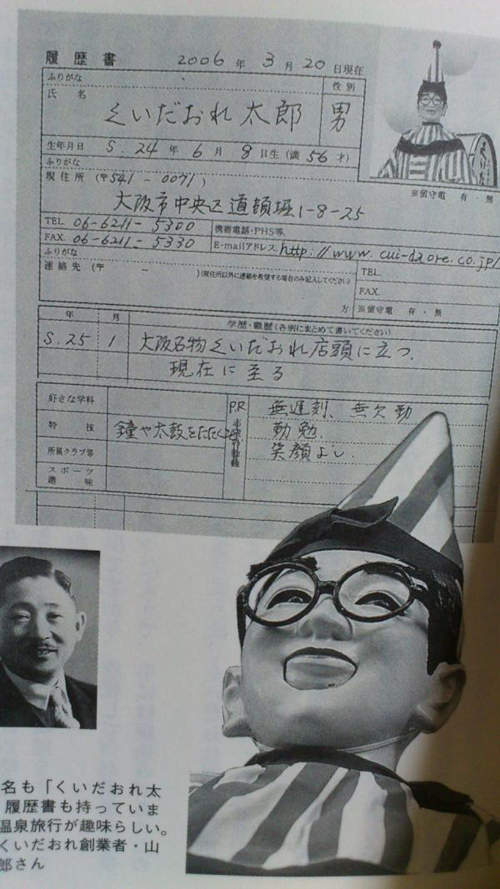 履歴書 2006年3月20日現在
ふりがな 性別
氏名 くいだおれ太郎 男
生年月日 S.24年6月8日生(満56才)
ふりがな
現住所(〒541-0071)
大阪市中央区道頓堀1-8-25
※留守電 有・無
TEL 06-6211-5300 携帯電話・PHS等
FAX 06-6211-5330 E-mailアドレス http://www.cui-daore.co.jp/
ふりがな
連絡先(〒 - )(現住所以外に連絡を希望する場合のみ記入してください) TEL
FAX
方 ※留守電 有・無
年 月 学歴・職歴(各別にまとめて書いてください)
S.25 1 大阪名物くいだおれ店頭に立つ。
現在に至る
好きな学科
特技 鐘や太鼓をたたくこと
所属クラブ等
スポーツ
趣味
PR
無遅刻、無欠勤
勤勉
笑顔よし。
名も「くいだおれ太
履歴書も持っていま
温泉旅行が趣味らしい。
くいだおれ創業者・山
郎さん